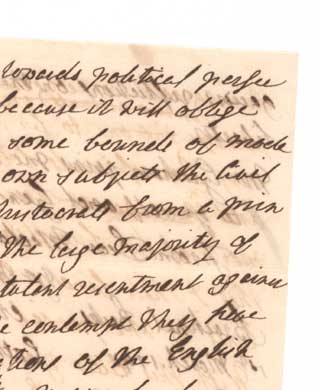 towards political perfec
because it will oblige
some bounds of mode
own subjects the Civil
Aristocrats from a prin
the large majority of
resentment against
contempt they have
of the English